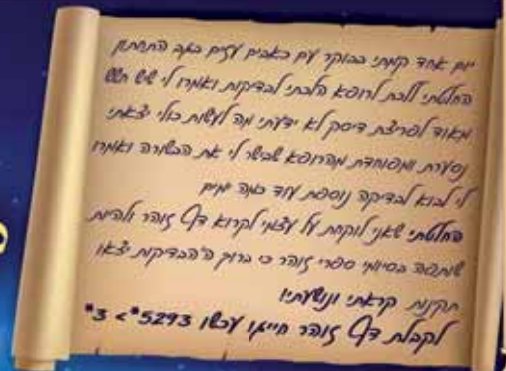 יום אחד קמתי בבוקר עם כאבים עזים בגב התחתון
החלטתי ללכת לרופא הלכתי לבדיקות ואמרו לי שיש חשש
מאוד לפריצת דיסק לא ידעתי מה לעשות כולי יצאתי
נסערת ומפוחדת מהרופא שבישר לי את הבשורה ואמרו
לי לבוא לבדיקה נוספת עוד כמה ימים
החלטתי שאני לוקחת על עצמי לקרוא דף זוהר ולהיות
שותפה בסיומי ספרי זוהר כי ברוק ה' הבדיקות יצאו
תקינות קראתי ונושעתי!
לקבלת דף זוהר חייגו עכשו 5293* > 3*